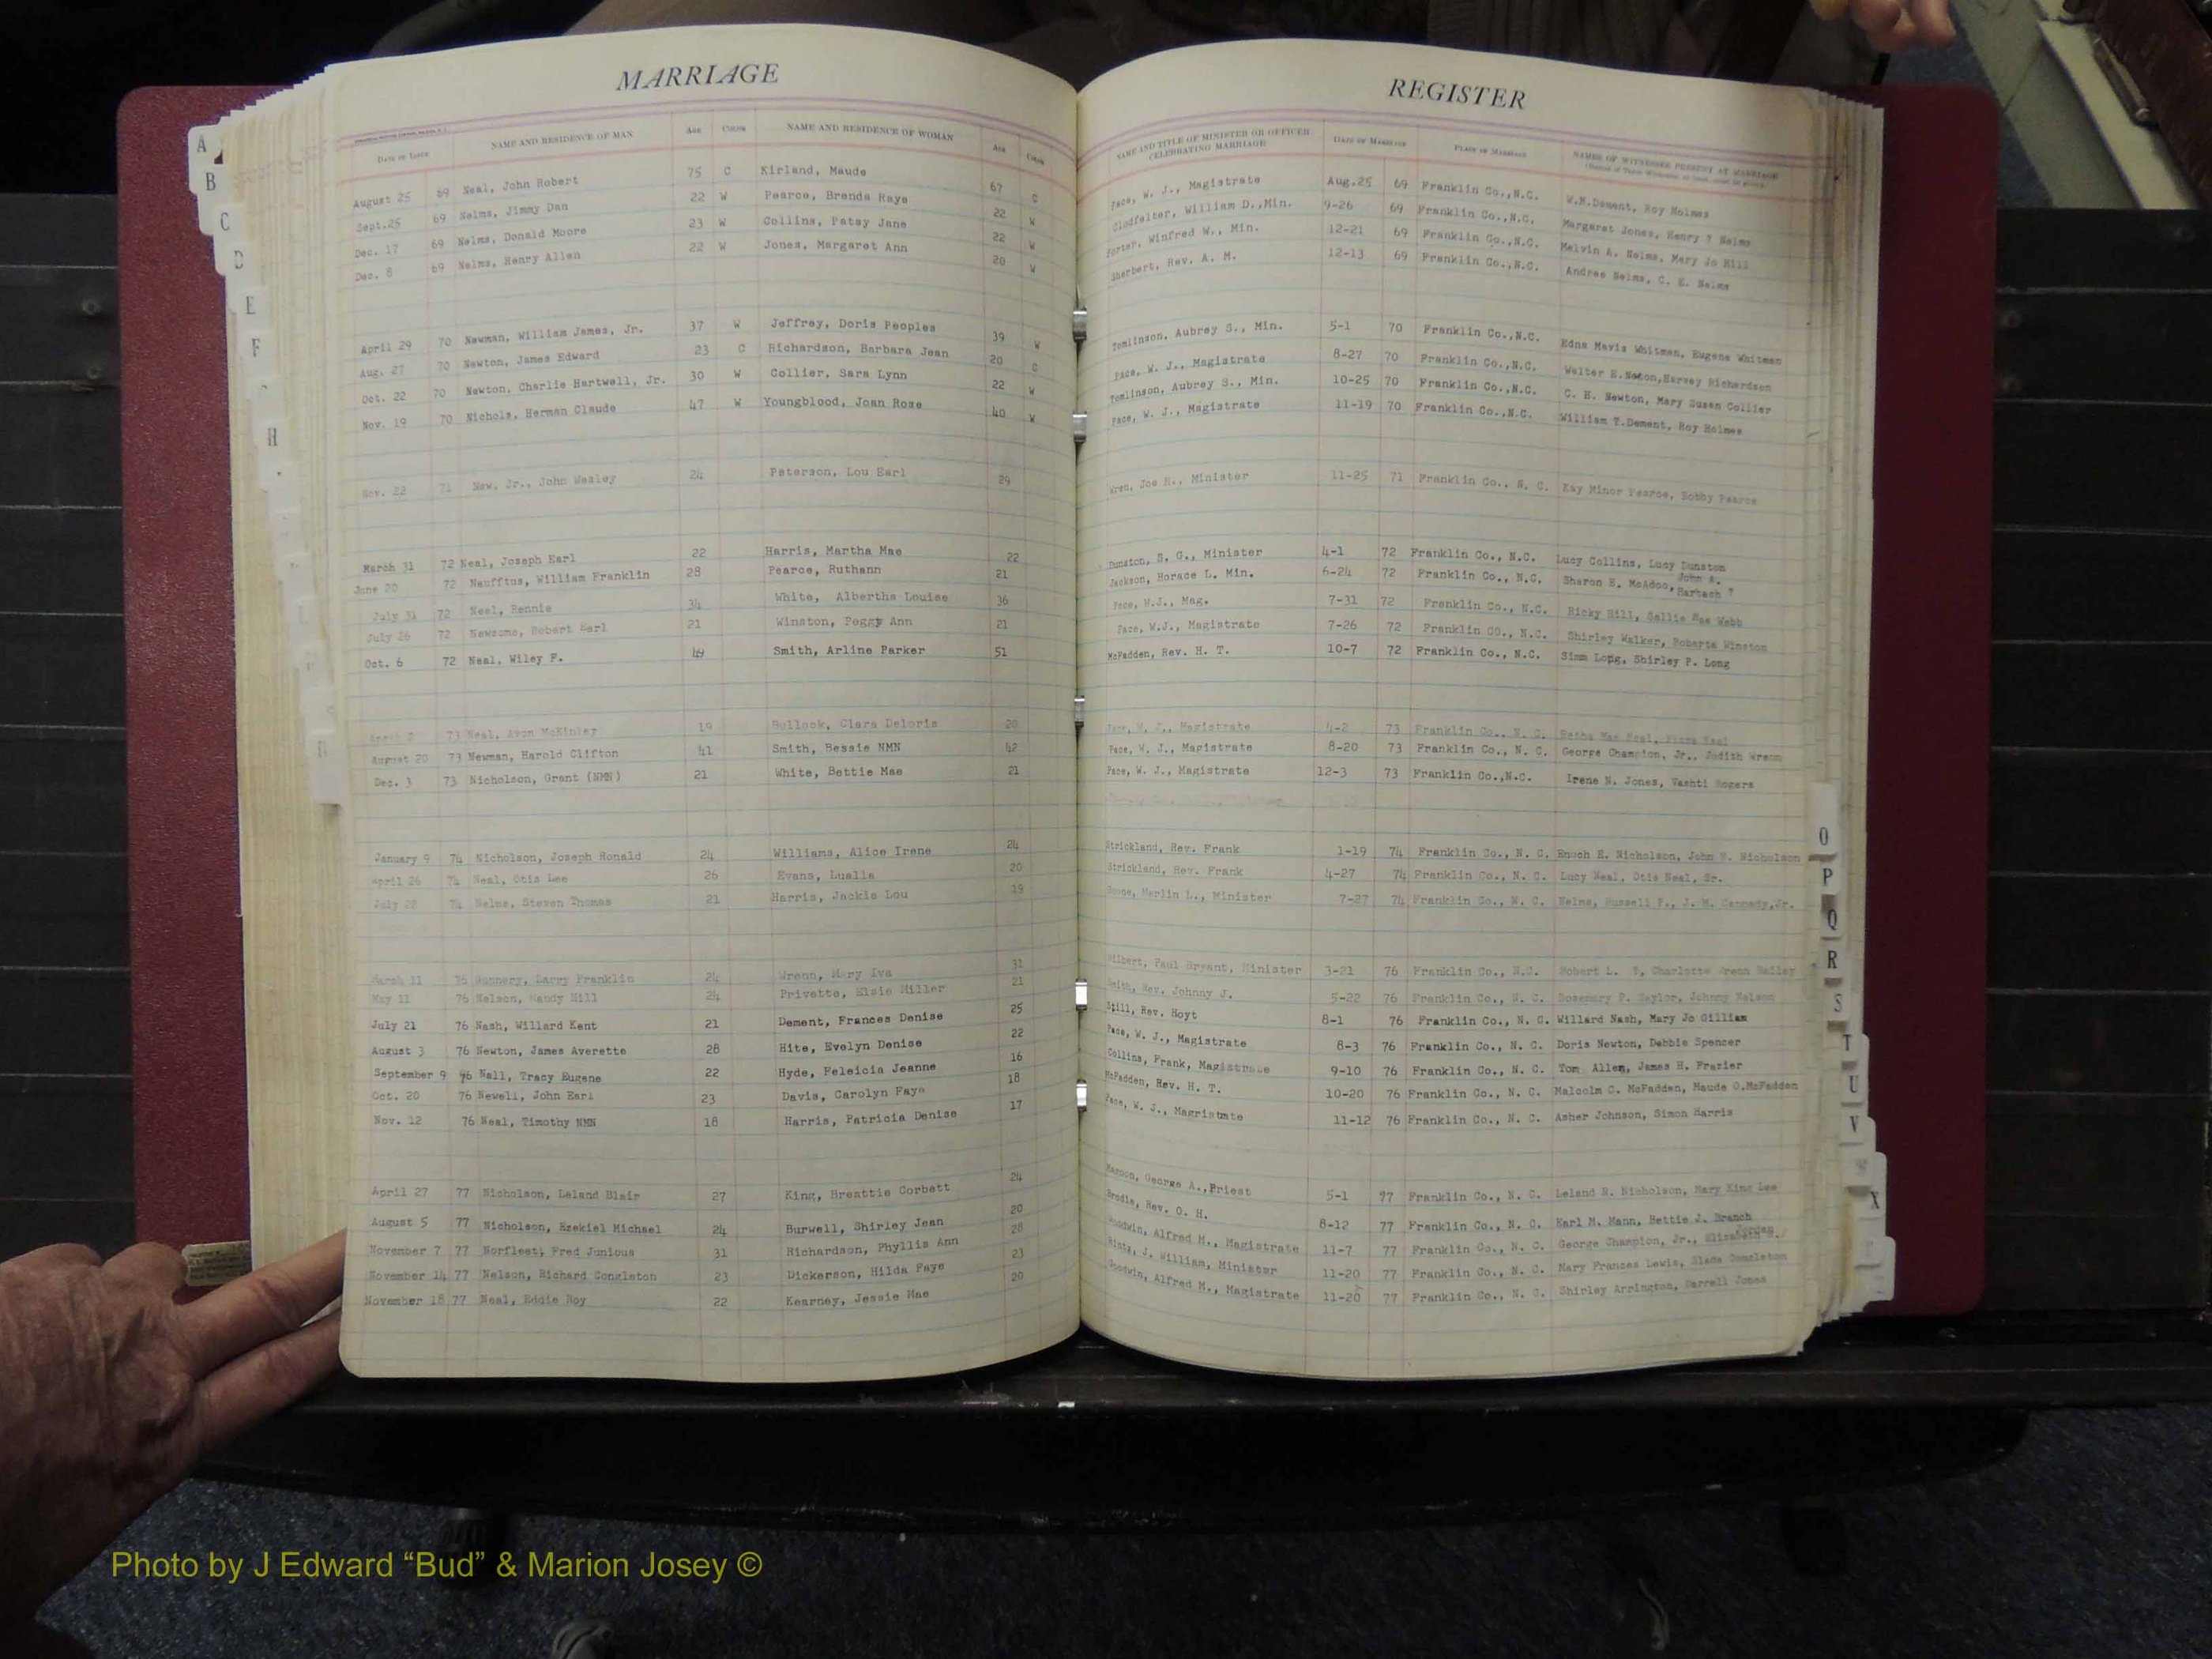 MARRIAGE
DATE OF ISSUE NAME AND RESIDENCE OF MAN AGE COLOR NAME AND RESIDENCE OF WOMAN AGE COLOR
August 25 69 Neal, John Robert 75 C Kirland, Maude 67 C
Sept.25 69 Nelms, Jimmy Dan 22 W Pearce, Brenda Raye 22 W
Dec. 17 69 Nelms, Donald Moore 23 W Collins, Patsy Jane 22 W
Dec. 8 69 Nelms, Henry Allen 22 W Jones, Margaret Ann 20 W
April 29 70 Newman, William James, Jr. 37 W Jeffrey, Doris Peoples 39 W
Aug. 27 70 Newton, James Edward 23 C Richardson, Barbara Jean 20 C
Oct. 22 70 Newton, Charlie Hartwell, Jr. 30 W Collier, Sara Lynn 22 W
Nov. 19 70 Nichols, Herman Claude 47 W Youngblood, Joan Rose 40 W
Nov. 22 71 New, Jr., John Wesley 24 Peterson, Lou Earl 29
March 31 72 Neal, Joseph Earl 22 Harris, Martha Mae 22
June 20 72 Naufftus, William Franklin 28 Pearce, Ruthann 21
July 31 72 Neal, Rennie 34 White, Albertha Louise 36
July 26 72 Newsome, Robert Earl 21 Winston, Peggy Ann 21
Oct. 6 72 Neal, Wiley F. 49 Smith, Arline Parker 51
April 2 73 Neal, Avon McKinley 19 Bullock, Clara Deloris 20
August 20 73 Newman, Harold Clifton 41 Smith, Bessie NMN 42
Dec. 3 73 Nicholson, Grant (NMN) 21 White, Bettie Mae 21
January 9 74 Nicholson, Joseph Ronald 24 Williams, Alice Irene 24
April 26 74 Neal, Otis Lee 26 Evans, Luella 20
July 22 74 Nelms, Steven Thomas 21 Harris, Jackie Lou 19
March 11 76 Nunnery, Larry Franklin 24 Wrenn, Mary Iva 31
May 11 76 Nelson, Handy Hill 24 Privette, Elsie Miller 21
July 21 76 Nash, Willard Kent 21 Dement, Frances Denise 25
August 3 76 Newton, James Averette 28 Hite, Evelyn Denise 22
September 9 76 Nall, Tracy Eugene 22 Hyde, Feleicia Jeanne 16
Oct. 20 76 Newell, John Earl 23 Davis, Carolyn Faye 18
Nov. 12 76 Neal, Timothy NMN 18 Harris, Patricia Denise 17
April 27 77 Nicholson, Leland Blair 27 King, Breattie Corbett 24
August 5 77 Nicholson, Ezekiel Michael 24 Burwell, Shirley Jean 20
November 7 77 Norfleet, Fred Junious 31 Richardson, Phyllis Ann 28
November 14 77 Nelson, Richard Congleton 23 Dickerson, Hilda Faye 23
November 18 77 Neal, Eddie Roy 22 Kearney, Jessie Mae 20
REGISTER
NAME AND TITLE OF MINISTER OR OFFICER CELEBRATING MARRIAGE DATE OF MARRIAGE PLACE OF MARRIAGE NAMES OF WITNESSES PRESENT AT MARRIAGE
Pace, W. J., Magistrate Aug.25 69 Franklin Co.,N.C. W.M.Dement, Roy Holmes
Clodfelter, William D.,Min. 9-26 69 Franklin Co.,N.C. Margaret Jones, Henry ? Nelms
Porter, Winfred W., Min. 12-21 69 Franklin Co.,N.C. Melvin A. Nelms, Mary Jo Hill
Sherbert, Rev. A. M. 12-13 69 Franklin Co.,N.C. Andree Nelms, O. E. Nelms
Tomlinson, Aubrey S., Min. 5-1 70 Franklin Co.,N.C. Edna Mavis Whitman, Eugene Whitman
Pace, W. J., Magistrate 8-27 70 Franklin Co.,N.C. Walter E.Neton,Harvey Richardson
Tomlinson, Aubrey S., Min. 10-25 70 Franklin Co.,N.C. C. H. Newton, Mary Susan Collier
Pace, W. J., Magistrate 11-19 70 Franklin Co.,N.C. William T.Dement, Roy Holmes
Wren, Joe R., Minister 11-25 71 Franklin Co., N. C. Kay Minor Pearce, Bobby Pearce
Dunston, S. G., Minister 4-1 72 Franklin Co., N.C. Lucy Collins, Lucy Dunston
Jackson, Horace L. Min. 6-24 72 Franklin Co., N.C. Sharon E. McAdoo, John A. Harbach ?
Pace, W.J., Mag. 7-31 72 Franklin Co., N.C. Ricky Hill, Sallie Mae Webb
Pace, W.J., Magistrate 7-26 72 Franklin CO., N.C. Shirley Walker, Roberta Winston
McFadden, Rev. H. T. 10-7 72 Franklin Co., N.C. Simm Long, Shirley P. Long
Pace, W. J., Magistrate 4-2 73 Franklin Co., N. C. Neal
Pace, W. J., Magistrate 8-20 73 Franklin Co., N. C. George Champion, Jr., Judith Wrenn
Pace, W. J., Magistrate 12-3 73 Franklin Co.,N.C. Irene N. Jones, Vashti Rogers
Strickland, Rev. Frank 1-19 74 Franklin Co., N. C. Enoch E. Nicholson, John W. Nicholson
Strickland, Rev. Frank 4-27 74 Franklin Co., N. C. Lucy Neal, Otis Neal, Sr.
Merlin L., Minister 7-27 74 Franklin Co., N. C. Nelms, Russell P., J. M. Jr.
Hilbert, Paul Bryant, Minister 3-21 76 Franklin Co., N.C. Robert L. ?, Charlotte Wrenn Bailey
Smith, Rev. Johnny J. 5-22 76 Franklin Co., N. C. Rosemary P. Naylor, Johnny Nelson
Still, Rev. Hoyt 8-1 76 Franklin Co., N. C. Willard Nash, Mary Jo Gilliam
Pace, W. J., Magistrate 8-3 76 Franklin Co., N. C. Doris Newton, Debbie Spencer
Collins, Frank, Magistrate 9-10 76 Franklin Co., N. C. Tom Allen, James H. Frazier
McFadden, Rev. H. T. 10-20 76 Franklin Co., N. C. Malcolm C. McFadden, Maude O.McFadden
Pace, W. J., Magristmte 11-12 76 Franklin Co., N. C. Asher Johnson, Simon Harris
Maroon, George A.,Priest 5-1 77 Franklin Co., N. C. Leland R. Nicholson, Mary King Lee
Brodie, Rev. O. H. 8-12 77 Franklin Co., N. C. Earl M. Mann, Bettie J. Branch
Goodwin, Alfred M., Magistrate 11-7 77 Franklin Co., N. C. George Champion, Jr., Elizabeth H. Jordan
Hintz, J. William, Minister 11-20 77 Franklin Co., N. C. Mary Frances Lewis, Slade Congleton
Goodwin, Alfred M., Magistrate 11-20 77 Franklin Co., N. C. Shirley Arrington, Darrell Jones
A
B
C
D
E
F
H
O
P
Q
R
S
T
U
V
W
X
Photo by J Edward “Bud” & Marion Josey ©